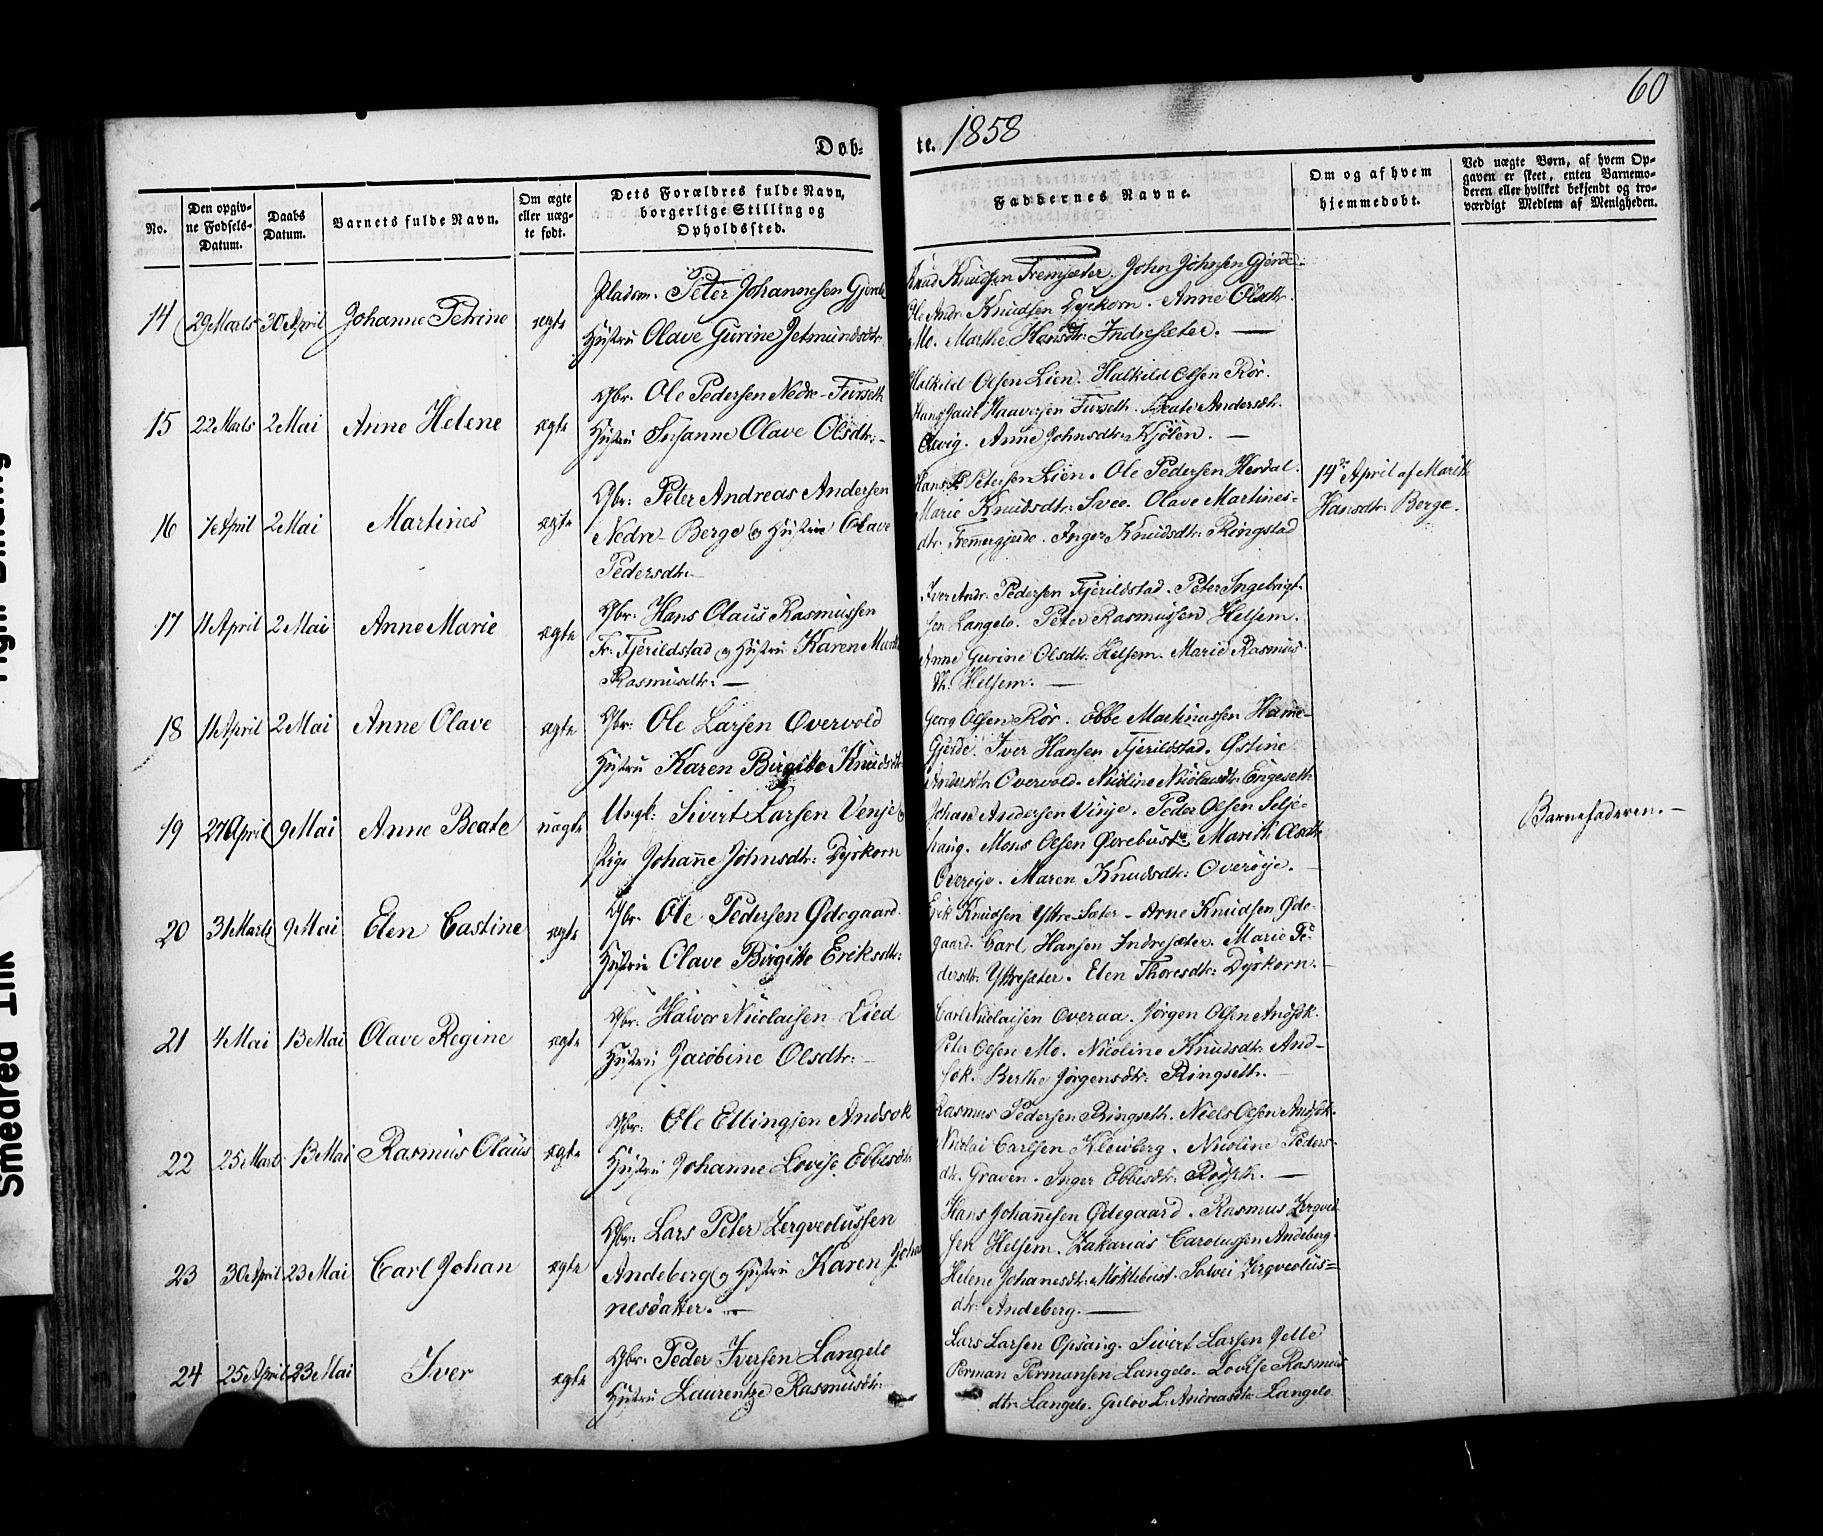 60
Døb- te. 1858
No.
Den opgiv-
ne Fødsels-
Datum.
Daabs
Datum.
Barnets fulde Navn.
Om ægte
eller uæg-
te født.
Dets Forældres fulde Navn,
borgerlige Stilling og
Opholdssted.
Faddernes Navne.
Om og af hvem
hjemmedøbt.
Ved uægte Børn, af hvem Op-
gaven er skeet, enten Barnemo-
deren eller hvilket bekjendt og tro-
værdigt Medlem af Menigheden.
14 29 Marts 30 April Johanne Petrine ægte
Pladsm. Peter Johannesen Gjerde
Hustru Olave Gurine Jetmundsdtr.
Knud Knudsen Fremsæter. John Johnsen Gjerde.
Ole Andr. Knudsen Dyrkorn. Anne Olsdtr.
Mo. Marthe Hansdtr. Indresæter. —
15 22 Marts 2 Mai Anne Helene ægte
Gbr. Ole Pedersen Nedre-Furseth
Hustru Susanne Olave Olsdtr: -
Halkild Olsen Lien. Halkild Olsen Rør.
Hans Paul Haavesen Furseth. Beate Andersdtr.
Anne Johnsdtr. Kjølen. —
16 7 April 2 Mai Martines ægte
Gbr: Peter Andreas Andersen
Nedre-Berge og Hustru Olave
Pedersdtr. —
Hans P. Petersen Lien. Ole Pedersen Herdal.
Marie Knudsdtr: Svee. Olave Martines-
dtr. Fremmergjerde. Inger Knudsdtr: Ringstad
14de April af Marith
Hansdtr. Berge.
17 11 April 2 Mai Anne Marie ægte
Gbr. Hans Olaus Rasmussen
Fr. Fjerildstad og Hustru Karen Marth
Rasmusdtr: —
Iver Andr. Pedersen Fjerildstad. Peter Ingebrigt-
sen Langelo. Peter Rasmussen Helsem.
Anne Gurine Olsdtr. Helsem. Marie Rasmus-
dtr. Helsem. —
18 11 April 2 Mai Anne Olave ægte
Gbr. Ole Larsen Overvold
Hustru Karen Birgitte Knudsdtr.
Georg Olsen Rør. Ebbe Martinussen Hamre-
Gjerde. Iver Hansen Fjerildstad. Østine
Andersdtr. Overvold. Nicoline Nicolausdtr. Engeseth
19 27 April 9 Mai Anne Beate uægte
Ungk: Sivert Larsen Venje og
Pige Johanne Johnsdtr: Dyrkorn
Johan Andersen Vinje. Peder Olsen Selje-
haug. Mons Olsen Øvrebust. Marith Olsdtr.
Overøye. Maren Knudsdtr: Overøye. —
Barnefaderen. —
20 31 Marts 9 Mai Elen Castine ægte
Gbr. Ole Pedersen Ødegaard.
Hustru Olave Birgitte Eriksdtr:
Erik Knudsen Yttre-Sæter - Arne Knudsen Øde-
gaard. Carl Hansen Indresæter. Marie Pe-
dersdtr. Yttresæter. Elen Thoresdtr: Dyrkorn. -
21 4 Mai 13 Mai Olave Regine ægte
Gbr. Halvor Nicolaisen Lied
Hustru Jacobine Olsdtr: -
Carl Nicolaisen Overaa. Jørgen Olsen Andsok.
Peter Olsen Mo. Nicoline Knudsdtr: And-
sok. Berthe Jørgensdtr: Ringseth. —
22 25 Marts 13 Mai Rasmus Olaus ægte
Gbr: Ole Ellingsen Andsok
Hustru Johanne Lovise Ebbesdtr
Rasmus Pedersen Ringseth. Niels Olsen Andsok.
Nicolai Carlsen Kleiveberg. Nicoline Peders-
dtr. Graven. Inger Ebbesdtr. —
23 30 April 23 Mai Carl Johan ægte
Gbr: Lars Peter Zerqveolussen
Andeberg og Hustru Karen Johan
nesdatter. —
Hans Johannesen Ødegaard. Rasmus Zerqvol-
sen Helsem. Zakarias Carolussen Andeberg.
Helene Johanesdtr. Møklebust. Solvei Zerqveolus-
dtr. Andeberg. —
24 25 April 23 Mai Iver ægte
Gbr. Peder Iversen Langelo
Hustru Laurentze Rasmusdtr.
Lars Larsen Opsang. Sivert Larsen Jelle
Perman Permansen Langelo. Lovise Rasmus
dtr. Langelo. L. Andreasdtr. Langelo
Smedred Ink